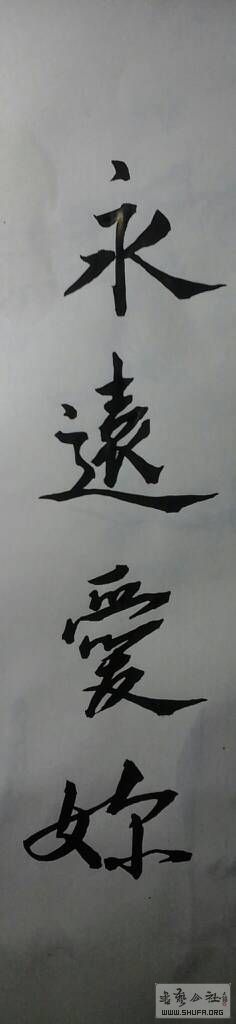 永遠愛妳
書藝公社
WWW.SHUFA.ORG